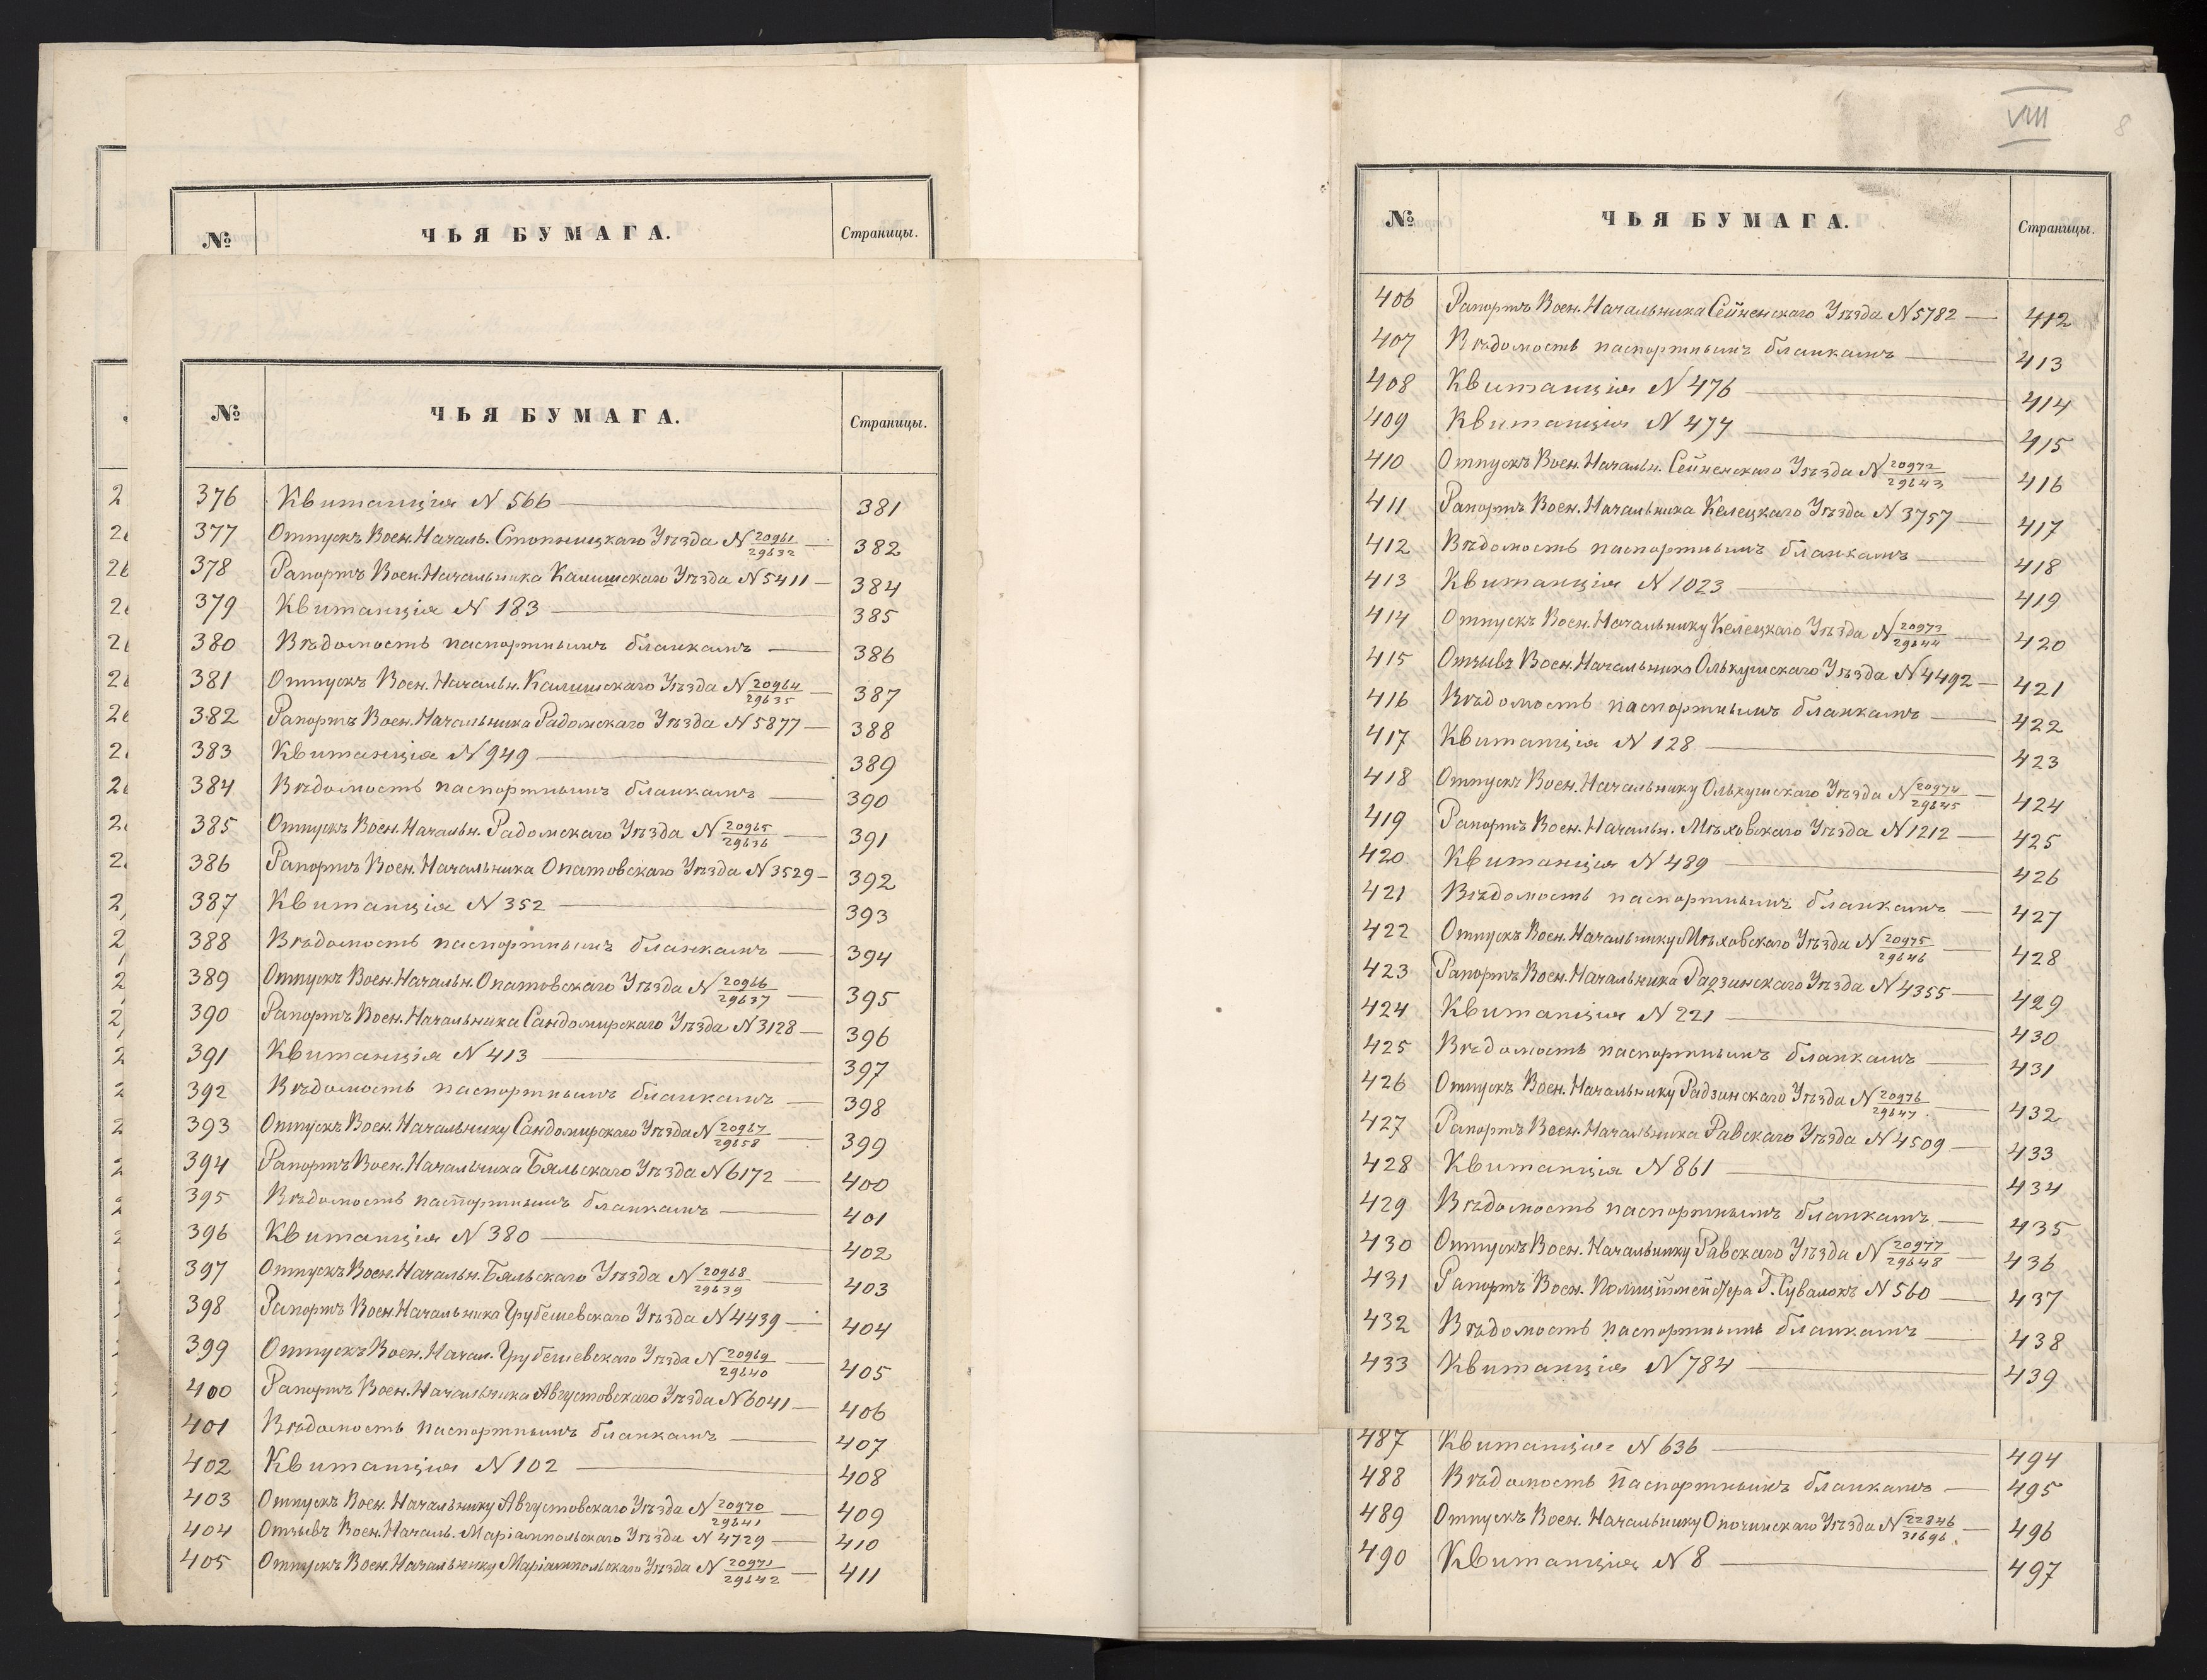 № ЧЬЯ БУМАГА. Страницы.
№ ЧЬЯ БУМАГА. Страницы.
376 Квитанція N 566 — 381
377 Отпускъ Воен. Началь. Стопницкаго Уѣзда N 20961/29632 — 382
378 Рапортъ Воен. Начальника Калишскаго Уѣзда N 5411 — 384
379 Квитанція N 183 — 385
380 Вѣдомость паспортнымъ бланкамъ — 386
381 Отпускъ Воен. Начальн. Калишскаго Уѣзда N 20964/29635 — 387
382 Рапортъ Воен. Начальника Радомскаго Уѣзда N 5877 — 388
383 Квитанція N 949 — 389
384 Вѣдомость паспортнымъ бланкамъ — 390
385 Отпускъ Воен. Начальн. Радомскаго Уѣзда N 20965/29636 — 391
386 Рапортъ Воен. Начальника Опатовскаго Уѣзда N 3529 — 392
387 Квитанція N 352 — 393
388 Вѣдомость паспортнымъ бланкамъ — 394
389 Отпускъ Воен. Начальн. Опатовскаго Уѣзда N 20966/29637 — 395
390 Рапортъ Воен. Начальника Сандомирскаго Уѣзда N 3128 — 396
391 Квитанція N 413 — 397
392 Вѣдомость паспортнымъ бланкамъ — 398
393 Отпускъ Воен. Начальнику Сандомирскаго Уѣзда N 20967/29658 — 399
394 Рапортъ Воен. Начальника Бяльскаго Уѣзда N 6172 — 400
395 Вѣдомость паспортнымъ бланкамъ — 401
396 Квитанція N 380 — 402
397 Отпускъ Воен. Начальн. Бяльскаго Уѣзда N 20968/29639 — 403
398 Рапортъ Воен. Начальника Грубешевскаго Уѣзда N 4439 — 404
399 Отпускъ Воен. Начал. Грубешевскаго Уѣзда N 20969/29640 — 405
400 Рапортъ Воен. Начальника Августовскаго Уѣзда N 6041 — 406
401 Вѣдомость паспортнымъ бланкамъ — 407
402 Квитанція N 102 — 408
403 Отпускъ Воен. Начальнику Августовскаго Уѣзда N 20970/29641 — 409
404 Отзывъ Воен. Началь. Маріампольскаго Уѣзда N 4729 — 410
405 Отпускъ Воен. Начальнику Маріампольскаго Уѣзда N 20971/29642 — 411
VIII 8
№ ЧЬЯ БУМАГА. Страницы.
406 Рапортъ Воен. Начальника Сейненскаго Уѣзда N 5782 — 412
407 Вѣдомость паспортнымъ бланкамъ — 413
408 Квитанція N 476 — 414
409 Квитанція N 477 — 415
410 Отпускъ Воен. Начальн. Сейненскаго Уѣзда N 20972/29643 — 416
411 Рапортъ Воен. Начальника Келецкаго Уѣзда N 3757 — 417
412 Вѣдомость паспортнымъ бланкамъ — 418
413 Квитанція N 1023 — 419
414 Отпускъ Воен. Начальнику Келецкаго Уѣзда N 20973/29644 — 420
415 Отзывъ Воен. Начальника Олькушскаго Уѣзда N 4492 — 421
416 Вѣдомость паспортнымъ бланкамъ — 422
417 Квитанція N 128 — 423
418 Отпускъ Воен. Начальнику Олькушскаго Уѣзда N 20974/29645 — 424
419 Рапортъ Воен. Начальн. Мѣховскаго Уѣзда N 1212 — 425
420 Квитанція N 489 — 426
421 Вѣдомость паспортнымъ бланкамъ — 427
422 Отпускъ Воен. Начальнику Мѣховскаго Уѣзда N 20975/29646 — 428
423 Рапортъ Воен. Начальника Радзинскаго Уѣзда N 4355 — 429
424 Квитанція N 221 — 430
425 Вѣдомость паспортнымъ бланкамъ — 431
426 Отпускъ Воен. Начальнику Радзинскаго Уѣзда N 20976/29647 — 432
427 Рапортъ Воен. Начальника Равскаго Уѣзда N 4509 — 433
428 Квитанція N 861 — 434
429 Вѣдомость паспортнымъ бланкамъ — 435
430 Отпускъ Воен. Начальнику Равскаго Уѣзда N 20977/29648 — 436
431 Рапортъ Воен. Полиціймейстера Г. Сувалокъ N 560 — 437
432 Вѣдомость паспортнымъ бланкамъ — 438
433 Квитанція N 784 — 439
487 Квитанція N 636 — 494
488 Вѣдомость паспортнымъ бланкамъ — 495
489 Отпускъ Воен. Начальнику Опочинскаго Уѣзда N 22846/31696 — 496
490 Квитанція N 8 — 497